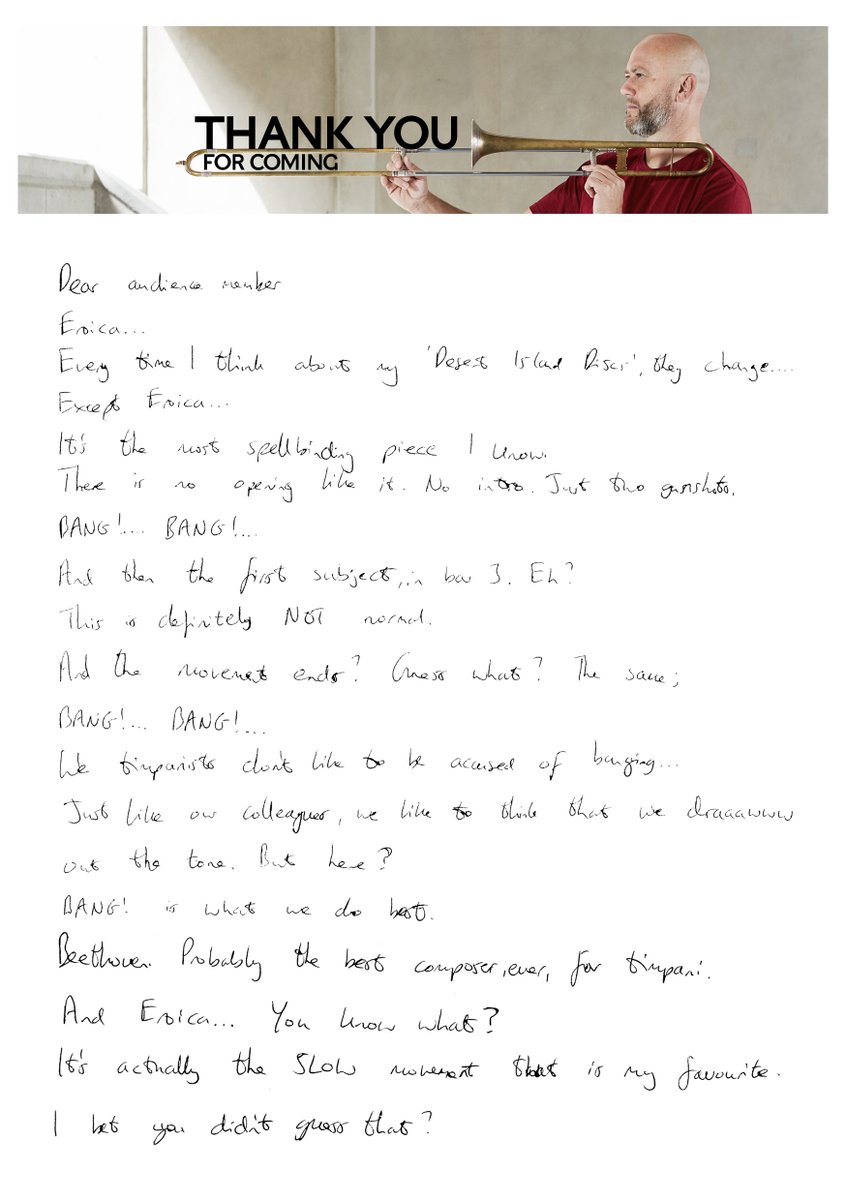 THANK YOU
FOR COMING
Dear audience member
Eroica...
Every time I think about my 'Desert Island Discs', they change....
Except Eroica...
It's the most spellbinding piece I know.
There is no opening like it. No intro. Just two gunshots.
BANG!.... BANG!...
And then the first subject, in bar 3. Eh?
This is definitely NOT normal.
And the movement ends? Guess what? The same;
BANG!... BANG!...
We timpanists don't like to be accused of banging...
Just like our colleagues, we like to think that we draaawwww
out the tone. But here?
BANG! is what we do best.
Beethoven. Probably the best composer, ever, for timpani.
And Eroica... You know what?
It's actually the SLOW movement that is my favourite.
I bet you didn't guess that?